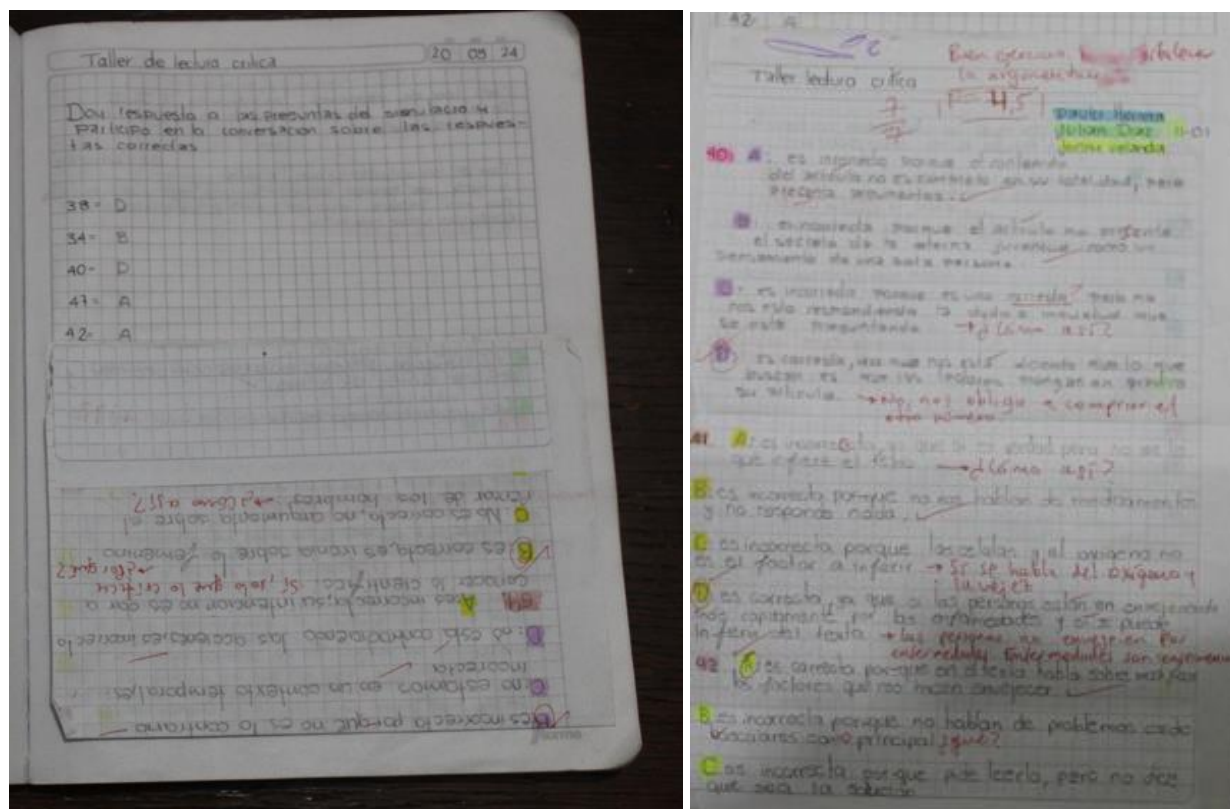 Taller de lectura critica 20 05 24
Doy respuesta a las preguntas del simulacro y
participo en la conversacion sobre las respues-
tas correctas
38- D
34- B
40- D
41- A
42- A
B es incorrecta porque no es lo contrario
C no estamos en un contexto temporal, es
incorrecta
D: no está contradiciendo las acciones, es incorrecto
A es incorrecta, su intencion no es dar a
conocer lo cientifico: Sí, solo que lo critica
B es correcta, es ironia sobre lo femenino → ¿Por qué?
C No es correcto, no argumenta sobre el
honor de los hombres → ¿Cómo así?
42. A
Taller lectura critica
Bien ejercicio,
la argumentación
7
7
F= 4,5
Julian Diaz 11-01
40: A: es incorrecta porque el contenido
del articulo no es completo en su totalidad, pero
presenta argumentos.
B es incorrecta porque el articulo no presenta
el secreto de la eterna juventud como un
pensamiento de una sola persona.
C: es incorrecta porque es una pero no
nos esta respondiendo la duda o inquietud que
se esta preguntando → ¿Cómo así?
D es correcta, ya que nos está diciendo que lo que
buscan es que los lectores
su articulo. → No, nos obliga a comprar el
otro número
41 A: es incorrecta ya que si es verdad pero no es lo
que infiere el texto → ¿Cómo así?
B: es incorrecta porque no nos hablan de medicamentos
y no responde nada.
C es incorrecta porque las celulas y el oxigeno no
es el factor a inferir → Sí se habla del oxígeno y
la vejez
D es correcta, ya que si las personas estan en
más rapidamente por las enfermedades y si se puede
inferir del texto → las personas no envejecen por
enfermedades. Enfermedades son
42 A: es correcta porque en el texto habla sobre
los factores que nos hacen envejecer
B es incorrecta porque no hablan de problemas cardo
vasculares como principal ¿qué?
C es incorrecta porque pide leerla, pero no dice
que sea la solución